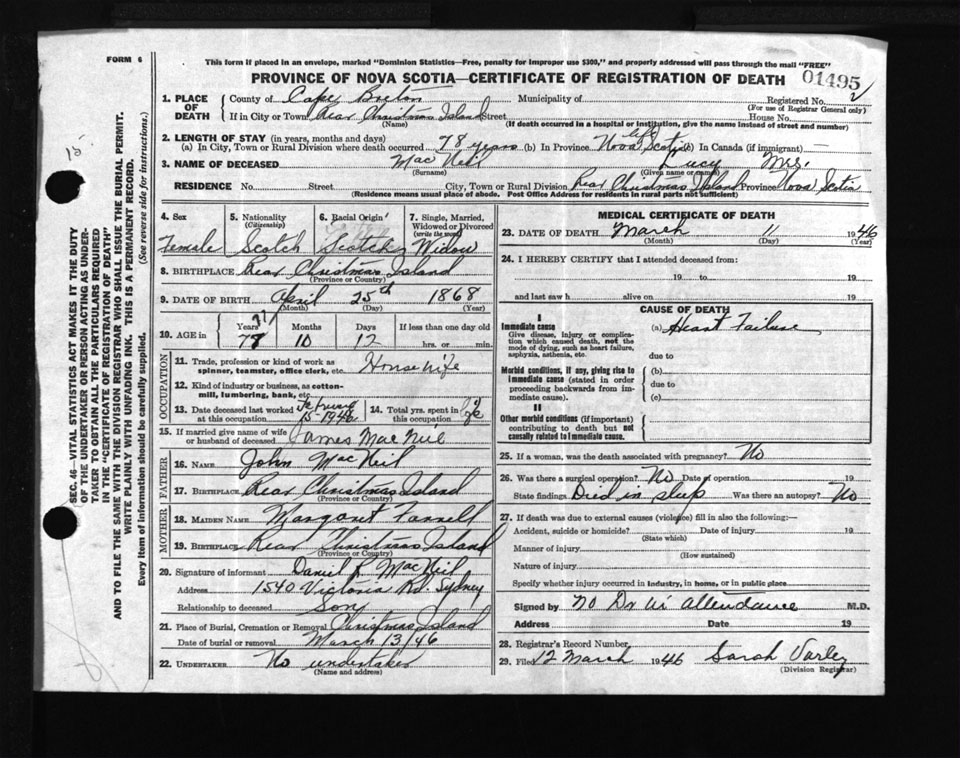 FORM 6
This form if placed in an envelope, marked "Dominion Statistics—Free, penalty for improper use $300," and properly addressed will pass through the mail "FREE"
PROVINCE OF NOVA SCOTIA—CERTIFICATE OF REGISTRATION OF DEATH
01495
1. PLACE OF DEATH
County of Cape Breton Municipality of Registered No.
(For use of Registrar General only)
If in City or Town Rear Christmas Island Street House No.
(Name) (If death occurred in a hospital or institution, give the name instead of street and number)
2. LENGTH OF STAY (in years, months and days)
(a) In City, Town or Rural Division where death occurred 78 years (b) In Province life Nova Scotia (c) In Canada (if immigrant) —
3. NAME OF DECEASED Mac Neil Lucy Mrs.
(Surname) (Given name or names)
RESIDENCE No. Street City, Town or Rural Division Rear Christmas Island Province Nova Scotia
(Residence means usual place of abode. Post Office Address for residents in rural parts not sufficient)
4. Sex Female
5. Nationality (Citizenship) Scotch
6. Racial Origin Scotch
7. Single, Married, Widowed or Divorced (write the word) Widow
8. BIRTHPLACE Rear Christmas Island
(Province or Country)
9. DATE OF BIRTH April 25th 1868
(Month) (Day) (Year)
10. AGE in Years 78 77 Months 10 Days 12 If less than one day old hrs. or min.
OCCUPATION
11. Trade, profession or kind of work as spinner, teamster, office clerk, etc. House wife
12. Kind of industry or business, as cotton-mill, lumbering, bank, etc.
13. Date deceased last worked at this occupation 15-1946
14. Total yrs. spent in this occupation life
15. If married give name of wife or husband of deceased James Mac Neil
FATHER
16. NAME John Mac Neil
17. BIRTHPLACE Rear Christmas Island
(Province or Country)
MOTHER
18. MAIDEN NAME Margaret Farrell
19. BIRTHPLACE Rear Christmas Island
(Province or Country)
20. Signature of informant Daniel R. Mac Neil
Address 1540 Victoria Rd. Sydney
Relationship to deceased Son
21. Place of Burial, Cremation or Removal Christmas Island
Date of burial or removal March 13/46
22. UNDERTAKER No undertaker
(Name and address)
MEDICAL CERTIFICATE OF DEATH
23. DATE OF DEATH March 11 1946
(Month) (Day) (Year)
24. I HEREBY CERTIFY that I attended deceased from:
19 to 19
and last saw h alive on 19
CAUSE OF DEATH
I
Immediate cause
Give disease, injury or complication which caused death, not the mode of dying, such as heart failure, asphyxia, asthenia, etc.
(a) Heart Failure
due to
Morbid conditions, if any, giving rise to immediate cause (stated in order proceeding backwards from immediate cause).
(b)
due to
(c)
II
Other morbid conditions (if important) contributing to death but not causally related to immediate cause.
25. If a woman, was the death associated with pregnancy? No
26. Was there a surgical operation? No Date of operation 19
State findings Died in sleep Was there an autopsy? No
27. If death was due to external causes (violence) fill in also the following:—
Accident, suicide or homicide? Date of injury 19
(State which)
Manner of injury
(How sustained)
Nature of injury
Specify whether injury occurred in industry, in home, or in public place
Signed by No Dr in attendance M.D.
Address Date 19
28. Registrar's Record Number
29. Filed 12 March 1946 Sarah Varley
(Division Registrar)
SEC. 46—VITAL STATISTICS ACT MAKES IT THE DUTY
OF THE UNDERTAKER OR PERSON ACTING AS UNDER-
TAKER TO OBTAIN ALL THE PARTICULARS REQUIRED
IN THE "CERTIFICATE OF REGISTRATION OF DEATH"
AND TO FILE THE SAME WITH THE DIVISION REGISTRAR WHO SHALL ISSUE THE BURIAL PERMIT.
WRITE PLAINLY WITH UNFADING INK. THIS IS A PERMANENT RECORD.
Every item of information should be carefully supplied. (See reverse side for instructions.)